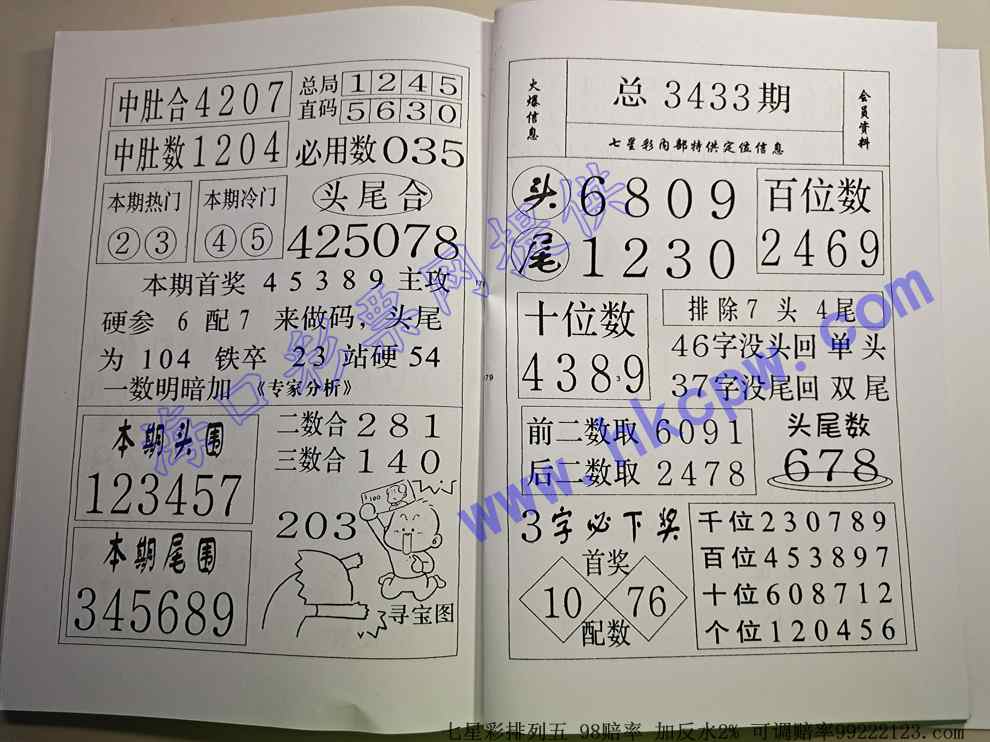 中肚合4207
总局 1245
直码 5630
中肚数1204
必用数035
本期热门
②③
本期冷门
④⑤
头尾合
425078
本期首奖 45389 主攻
硬参 6 配7 来做码，头尾
为 104 铁卒 23站硬 54
一数明暗加 《专家分析》
本期头围
123457
二数合281
三数合140
本期尾围
345689
203
100
寻宝图
火爆信息
总 3433期
七星彩内部特供定位信息
会员资料
头 6809
尾 1230
百位数
2469
十位数
4389
排除7 头 4尾
46字没头回 单 头
37字没尾回 双 尾
前二数取 6091
后二数取 2478
头尾数
678
3字必下奖
首奖
10 76
配数
千位230789
百位453897
十位608712
个位120456
海口彩票网提供
www.hkcpw.com
七星彩排列五 98赔率 加反水2% 可调赔率99222123.com